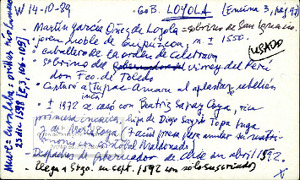 W 14-10-29 GOB. LOYOLA (Encina 3, pág 49)
• Martín García Oñez de Loyola = sobrino de San Ignacio
joven noble de Guipúzcoa, n. ± 1550.
• caballero de la orden de Calatrava
• Sobrino del virrey del Perú
don Fco. de Toledo
USADO
• Capturó a Tupac Amaru al aplastar rebelión
inca
• ± 1592 se casó con Beatriz Sapay Coya, rica
princesa incásica, hija de Diego Sayri Topa Inga
y de María Coya
con Cristóbal Maldonado)
• Despachos de gobernador de Chile en abril 1592.
llega a Stgo. en sept. 1592 con sólo
Muere Curalaba = orillas río Lumaco
23 dic 1598